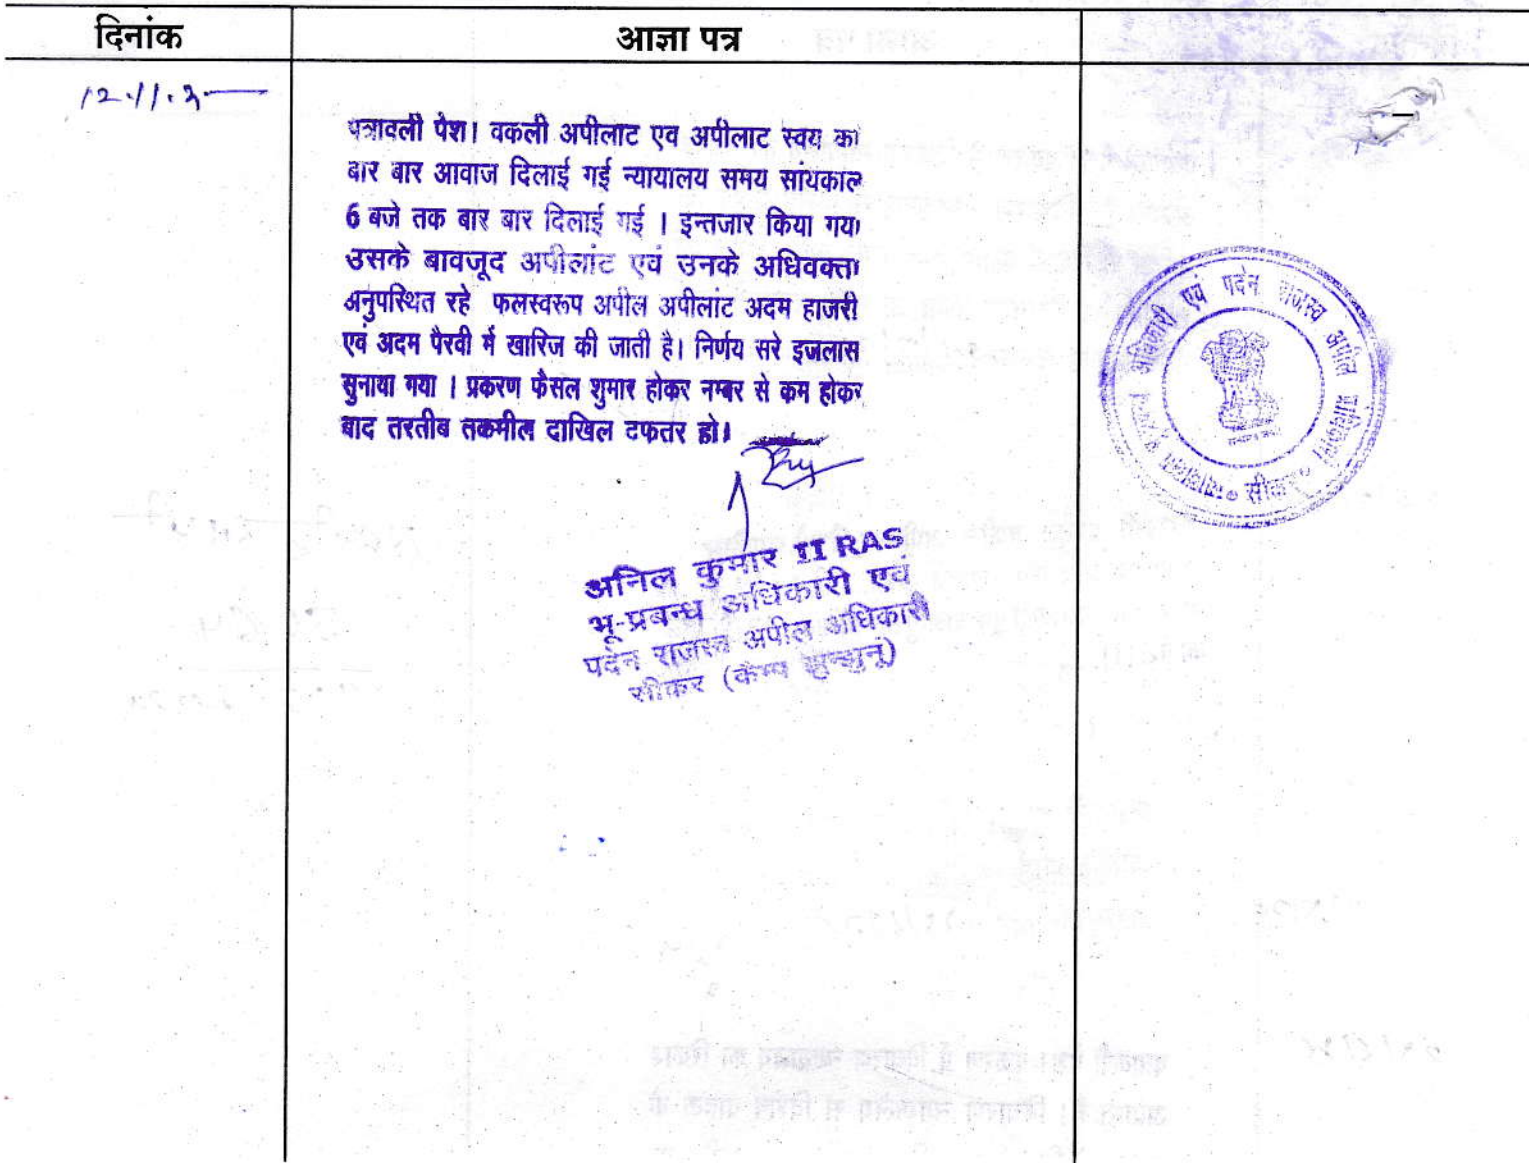 दिनांक
आज्ञा पत्र
12.11.2
पत्रावली पेश। वकली अपीलाट एव अपीलाट स्वय का
बार बार आवाज दिलाई गई न्यायालय समय सांयकाल
6 बजे तक बार बार दिलाई गई । इन्तजार किया गया
उसके बावजूद अपीलांट एवं उनके अधिवक्ता
अनुपस्थित रहे फलस्वरूप अपील अपीलांट अदम हाजरी
एवं अदम पैरवी में खारिज की जाती है। निर्णय सरे इजलास
सुनाया गया । प्रकरण फैसल शुमार होकर नम्बर से कम होकर
बाद तरतीब तकमील दाखिल टफतर हो।
अनिल कुमार II RAS
भू-प्रबन्ध अधिकारी एवं
पदेन राजस्व अपील अधिकारी
सीकर (कैम्प झुन्झुनू)
अधिकारी एवं पदेन राजस्व अपील
सीकर